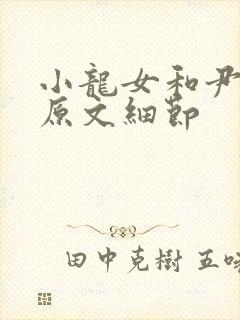 小龍女和尹
原文細節
田中克樹 五